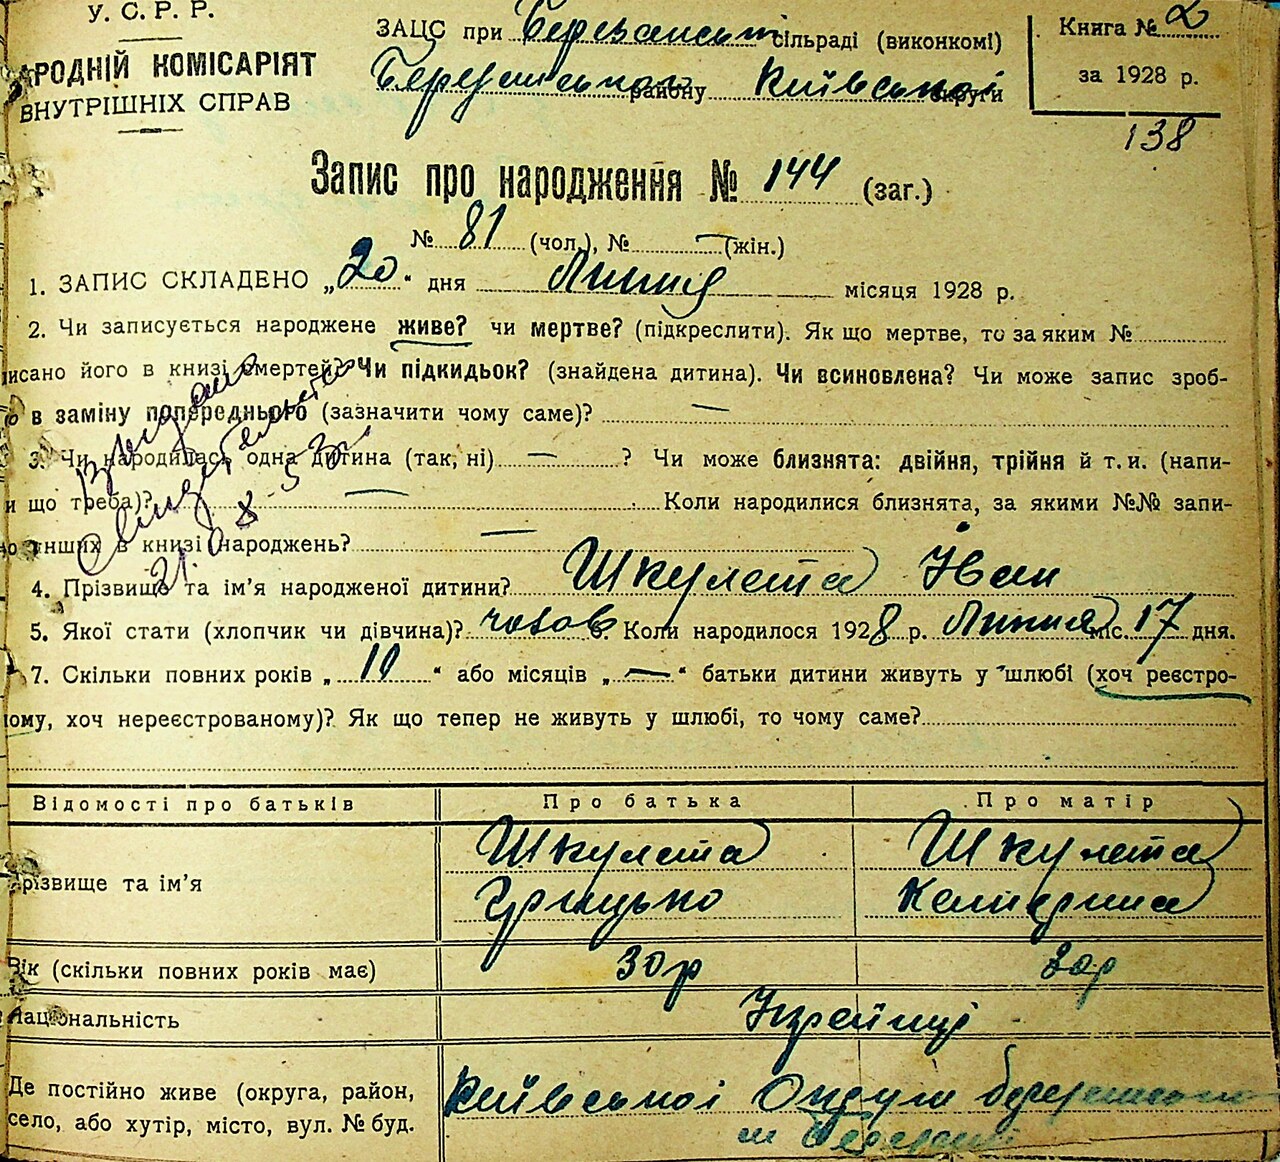 У. С. Р. Р.
АРОДНІЙ КОМІСАРІЯТ
ВНУТРІШНІХ СПРАВ
ЗАЦС при Березанськ сільраді (виконкомі)
району Київської округи
Книга № 2
за 1928 р.
138
Запис про народження № 144 (заг.)
№ 81 (чол.), № — (жін.)
1. ЗАПИС СКЛАДЕНО „20“ дня Липня місяця 1928 р.
2. Чи записується народжене живе? чи мертве? (підкреслити). Як що мертве, то за яким №
писано його в книзі смертей? Чи підкидьок? (знайдена дитина). Чи всиновлена? Чи може запис зроб-
о в заміну попереднього (зазначити чому саме)? —
3. Чи народилась одна дитина (так, ні) — ? Чи може близнята: двійня, трійня й т. и. (напи-
и що треба)? — Коли народилися близнята, за якими №№ запи-
но інших в книзі народжень? —
Выдано
Свидетельство
21.
4. Прізвище та ім’я народженої дитини? Шкулета Іван
5. Якої стати (хлопчик чи дівчина)? чолов 6. Коли народилось 1928 р. Липня міс. 17 дня.
7. Скільки повних років „10“ або місяців „—“ батьки дитини живуть у шлюбі (хоч реєстро-
ому, хоч нереєстрованому)? Як що тепер не живуть у шлюбі, то чому саме?
Відомості про батьків Про батька Про матір
Прізвище та ім’я Шкулета Грицько Шкулета Катерина
Вік (скільки повних років має) 30 р 30 р
Національність Українці
Де постійно живе (округа, район, Київської Округи
село, або хутір, місто, вул. № буд. м